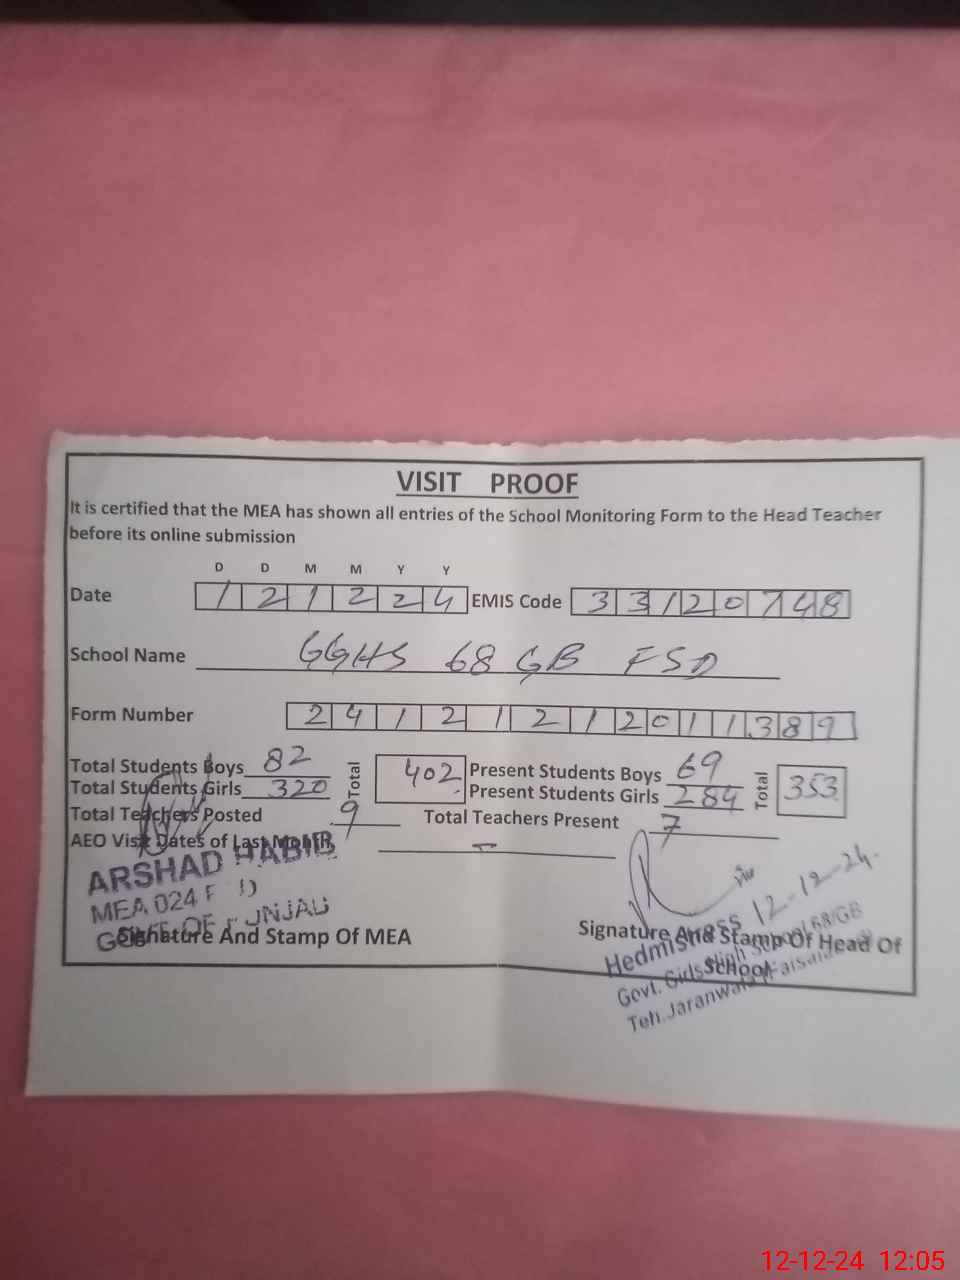 VISIT PROOF
It is certified that the MEA has shown all entries of the School Monitoring Form to the Head Teacher
before its online submission
D D M M Y Y
Date 1 2 1 2 2 4 EMIS Code 3 3 1 2 0 7 4 8
School Name GGHS 68 GB FSD
Form Number 2 4 1 2 1 2 1 2 0 1 1 3 8 9
Total Students Boys 82 Total 402 Present Students Boys 69 Total 353
Total Students Girls 320 Present Students Girls 284
Total Teachers Posted 9 Total Teachers Present 7
AEO Visit Dates of Last Month -
ARSHAD HABIB
MEA 024
GOVT. OF PUNJAB
Signature And Stamp Of MEA
12-12-24.
Signature And Stamp Of Head Of
School
Hedmistress
Govt. Girls High School 68/GB
Teh. Jaranwala
12-12-24 12:05